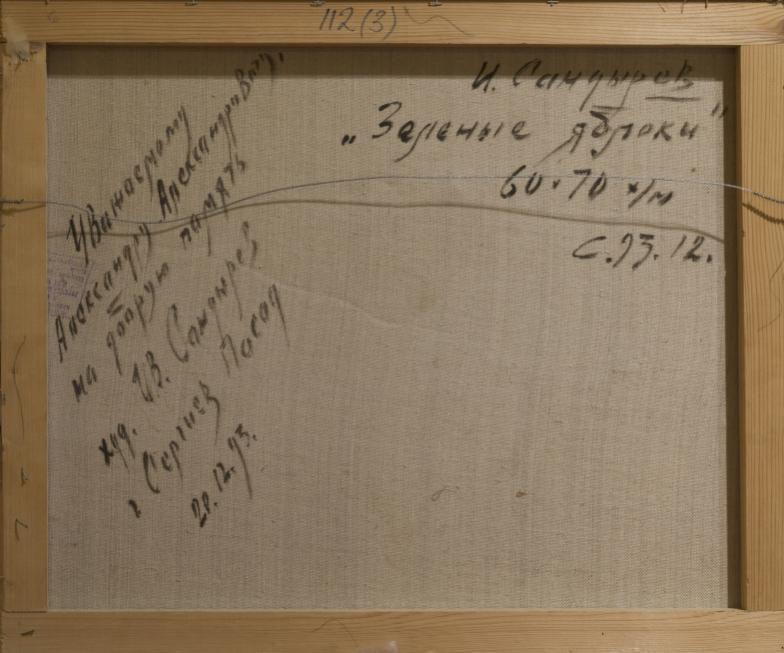 112(3)
И. Сандырев
„Зеленые яблоки"
60×70 х/м
С.93.12.
Уважаемому
Александру Александровичу,
на добрую память
худ. Ив. Сандырев
г Сергиев Посад
20.12.93.